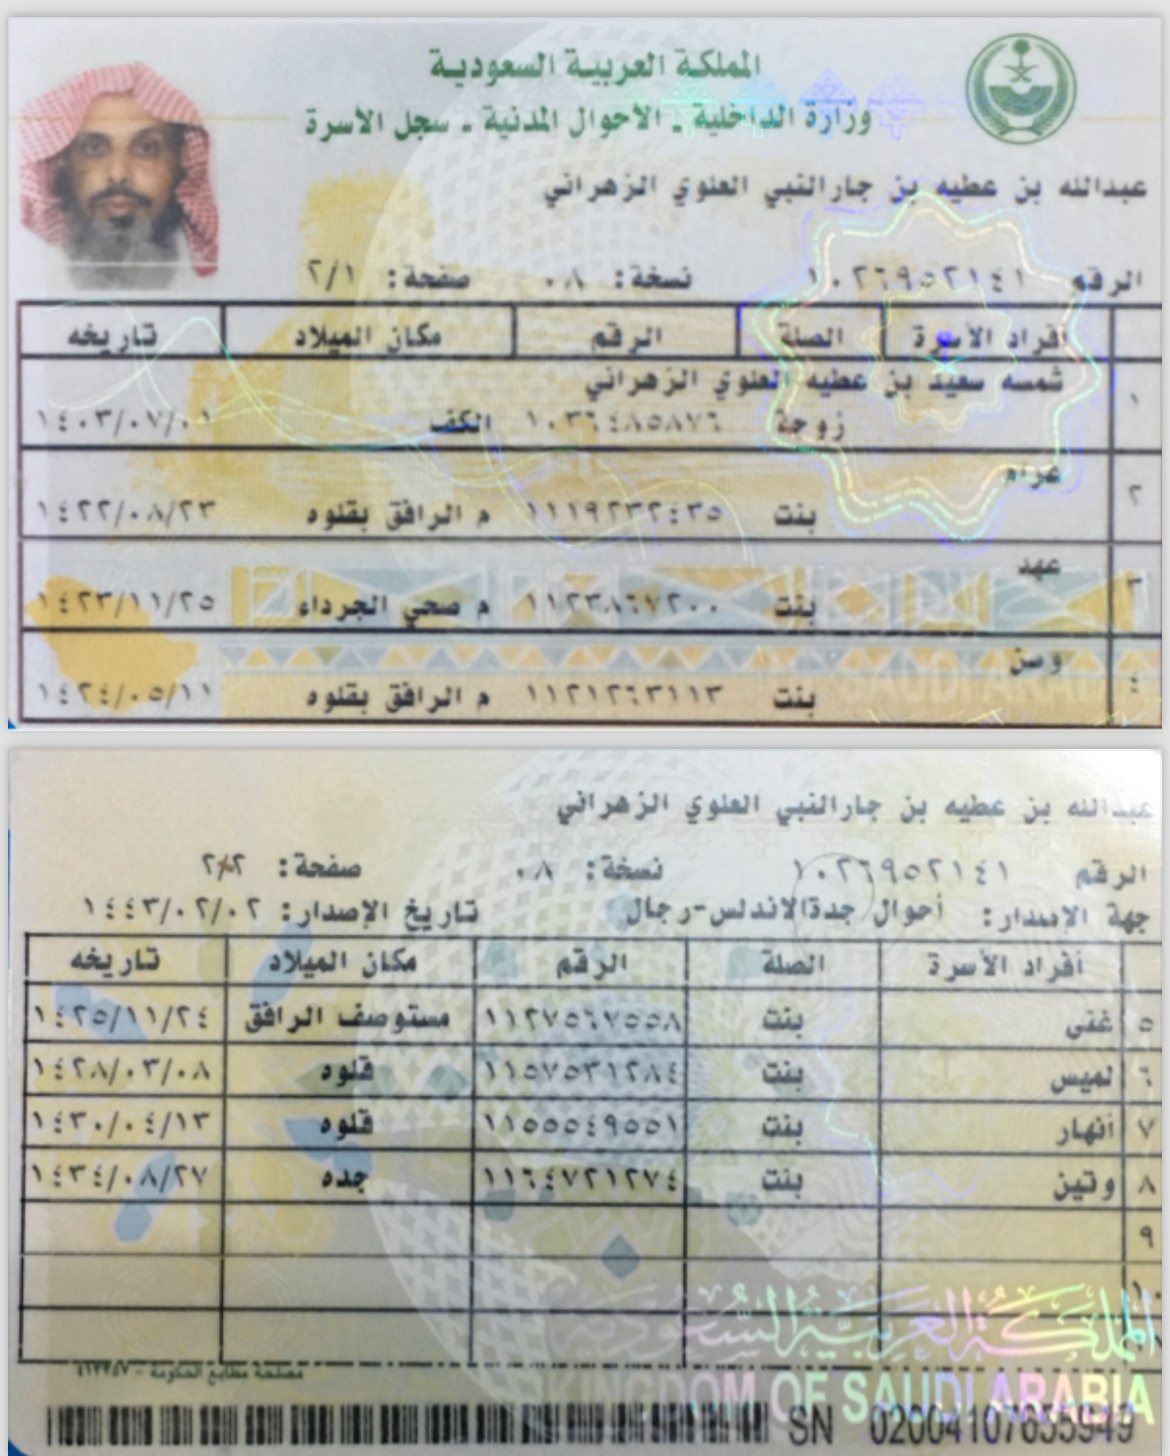 المملكة العربية السعودية
وزارة الداخلية - الأحوال المدنية - سجل الأسرة
عبدالله بن عطيه بن جارالنبي العلوي الزهراني
الرقم ١٠٢٦٩٥٢١٤١ نسخة: ٠٨ صفحة: ٢/١
أفراد الأسرة الصلة الرقم مكان الميلاد تاريخه
١ شمسه سعيد بن عطيه العلوي الزهراني
زوجة ١٠٣٦٤٨٥٨٧٦ الكف ١٤٠٣/٠٧/٠١
٢ عرام
بنت ١١١٩٢٣٢٤٣٥ م الرافق بقلوه ١٤٢٢/٠٨/٢٣
٣ عهد
بنت ١١٢٣٨٦٧٢٠٠ م صحي الجرداء ١٤٢٣/١١/٢٥
٤ وسن
بنت ١١٢١٢٦٣١١٣ م الرافق بقلوه ١٤٢٤/٠٥/١١
SAUDI ARABIA
عبدالله بن عطيه بن جارالنبي العلوي الزهراني
الرقم ١٠٢٦٩٥٢١٤١ نسخة: ٠٨ صفحة: ٢/٢
جهة الإصدار: أحوال جدةالاندلس-رجال تاريخ الإصدار: ١٤٤٣/٠٢/٠٢
أفراد الأسرة الصلة الرقم مكان الميلاد تاريخه
٥ غنى بنت ١١٢٧٥٦٧٥٥٨ مستوصف الرافق ١٤٢٥/١١/٢٤
٦ لميس بنت ١١٥٧٥٣١٢٨٤ قلوه ١٤٢٨/٠٣/٠٨
٧ أنهار بنت ١١٥٥٥٤٩٥٥١ قلوه ١٤٣٠/٠٤/١٣
٨ وتين بنت ١١٦٤٧٢١٢٧٤ جده ١٤٣٤/٠٨/٢٧
٩
١٠
المملكة العربية السعودية
مصلحة مطابع الحكومة -
KINGDOM OF SAUDI ARABIA
SN 02004107655949